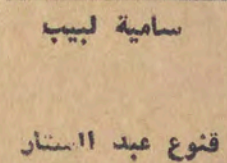 سامية لبيب
قنوع عبد الستار